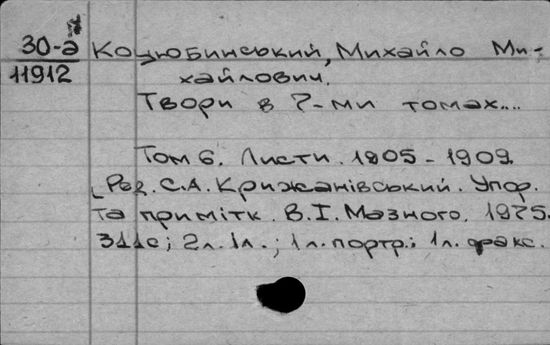 30-а Коцюбинський, Михайло Ми-
11912 хайлович.
Твори в 7-ми томах...
Том 6. Листи. 1905 - 1909.
[Ред. С.А. Крижанівський. Упор.
та примітк. В.І. Мазного. 1975.
311с; 2л. іл.; 1л. портр.; 1л. факс.